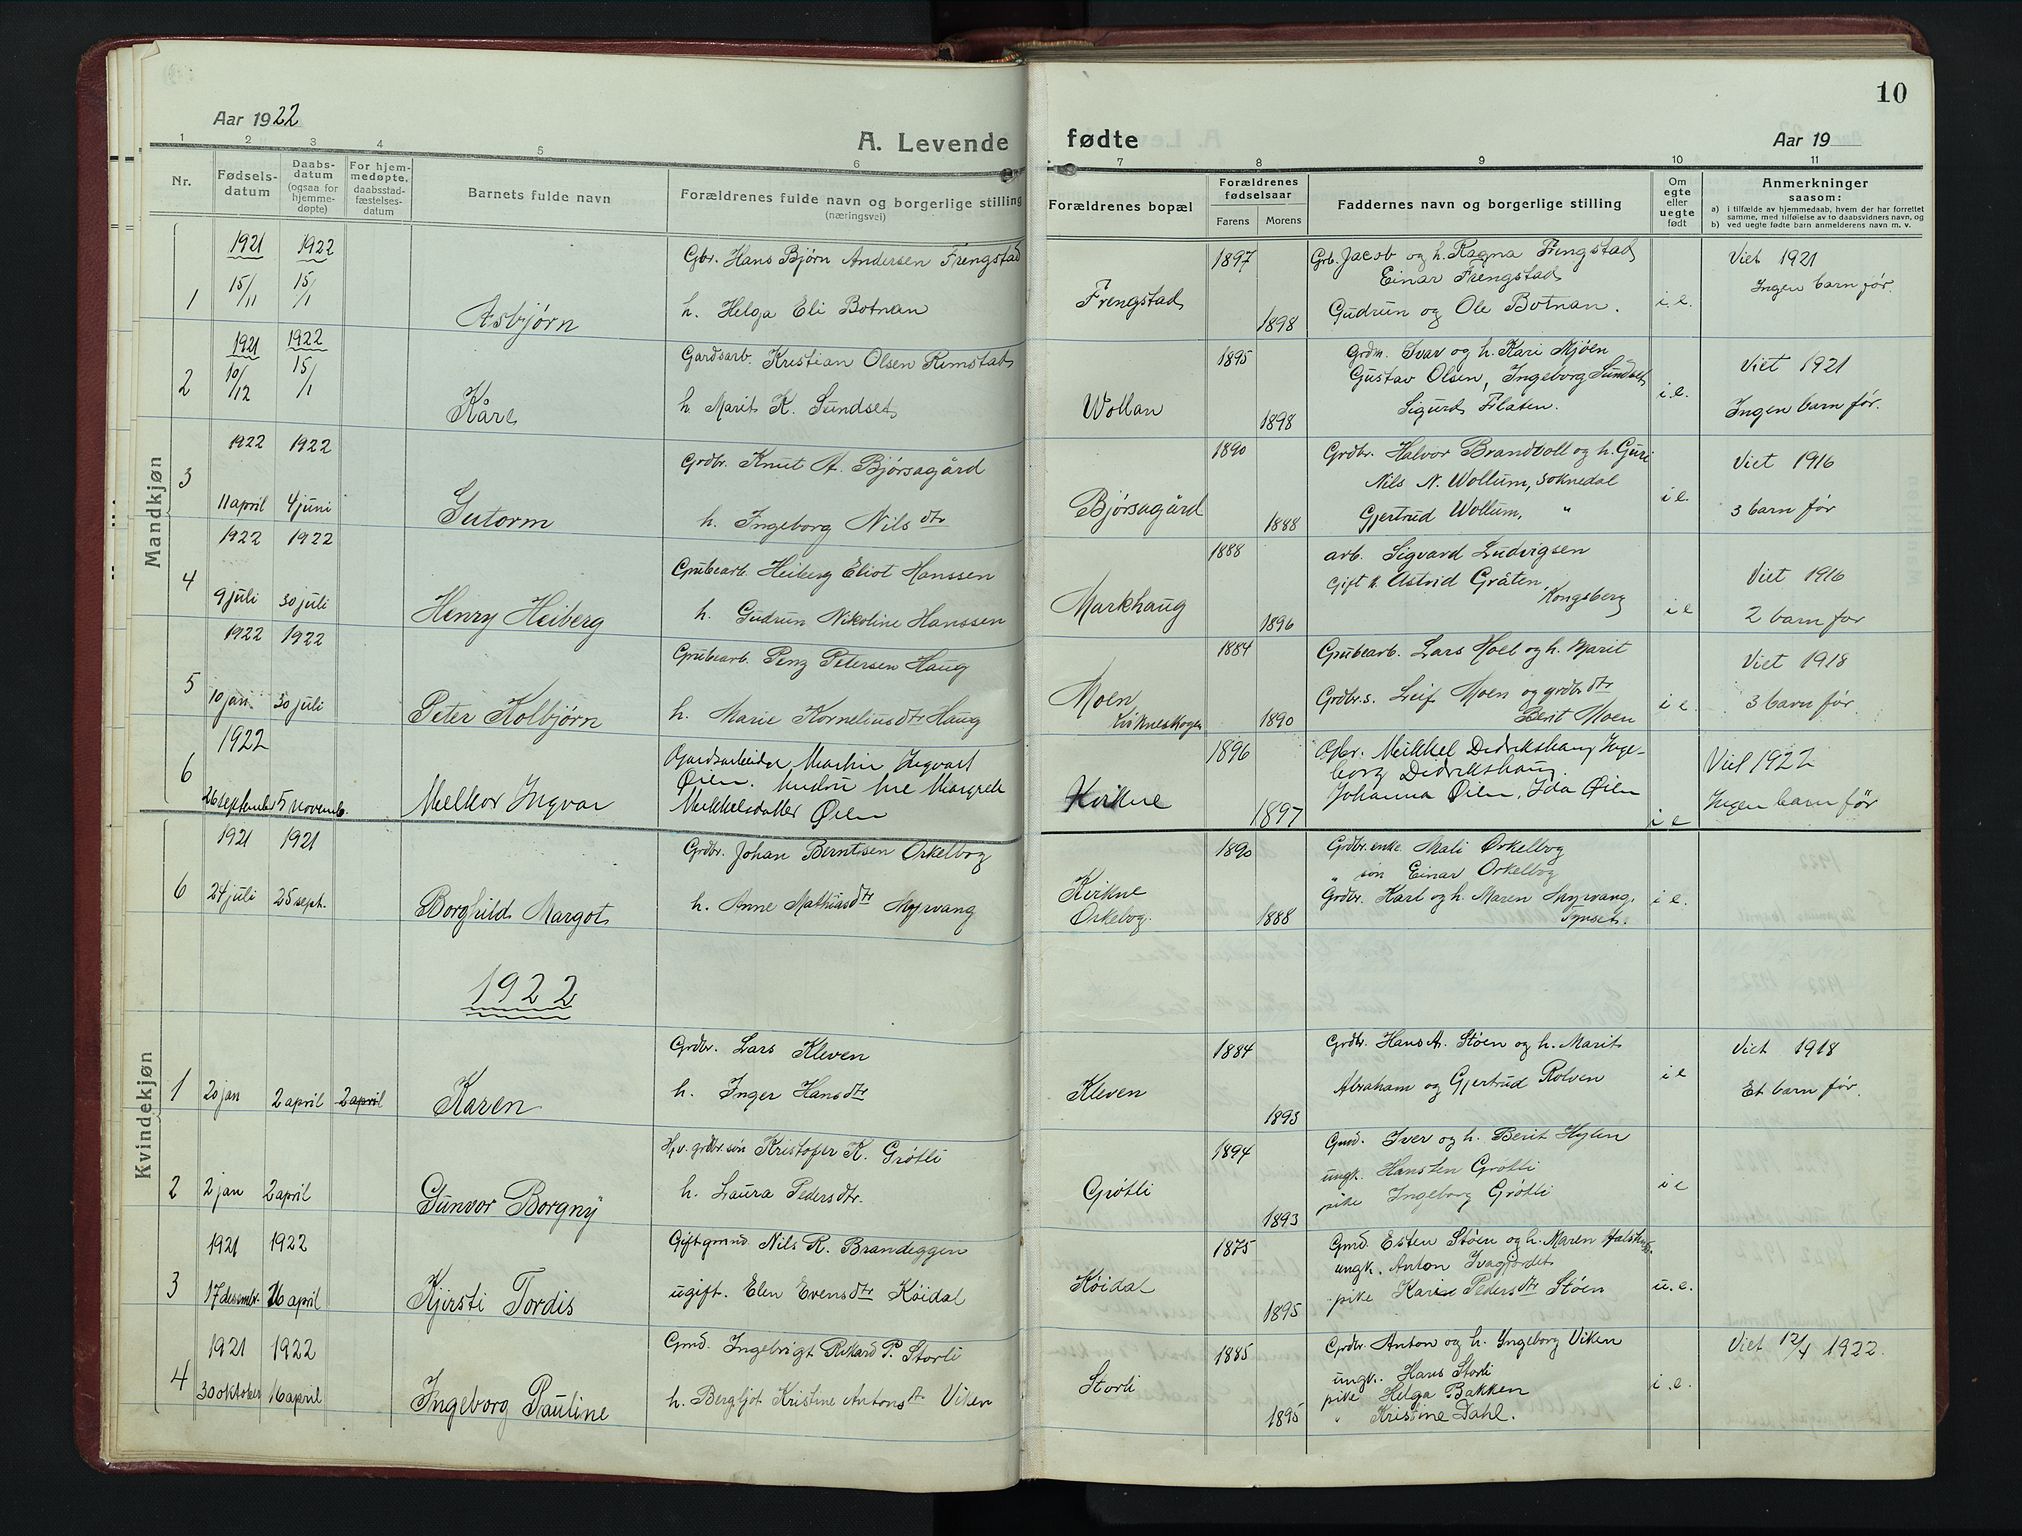 10
Aar 1922
A. Levende fødte
Aar 19
1 2 3 4 5 6 7 8 9 10 11
Nr.
Fødselsdatum
Daabsdatum (ogsaa for hjemmedøpte)
For hjemmedøpte, daabsstadfæstelsesdatum
Barnets fulde navn
Forældrenes fulde navn og borgerlige stilling (næringsvei)
Forældrenes bopæl
Forældrenes fødselsaar
Farens Morens
Faddernes navn og borgerlige stilling
Om egte eller uegte født
Anmerkninger saasom:
a) i tilfælde av hjemmedaab, hvem der har forrettet samme, med tilføielse av to daabsvidners navn, og
b) ved uegte fødte barn anmelderens navn m. v.
Mandkjøn
1
1921 15/11
1922 15/1
Asbjørn
Gbr. Hans Bjørn Andersen Frengstad
h. Helga Eli Botnan
Frengstad
1897
1898
Grb. Jacob og h. Ragna Frengstad
Einar Frengstad
Gudrun og Ole Botnan.
i.e.
Viet 1921
Ingen barn før.
2
1921 10/12
1922 15/1
Kåre
Gardsarb. Kristian Olsen Rimstad
h Marit K. Sundset
Wollan
1895
1898
Grdm. Ivar og h. Kari Mjøen
Gustav Olsen, Ingeborg Sundset
Sigurd Flaten.
i.e.
Viet 1921
Ingen barn før.
3
1922 11 april
1922 4 juni
Gutorm
Grdbr. Knut A. Bjørsagård
h. Ingeborg Nilsdtr
Bjørsagård
1890
1888
Grdbr. Halvor Brandvoll og h. Guri
Nils N. Wollum, Soknedal
Gjertrud Wollum, "
i e.
Viet 1916
3 barn før
4
1922 9 juli
1922 30 juli
Henry Heiberg
Grubearb. Heiberg Eliot Hanssen
h. Gudrun Nikoline Hanssen
Markhaug
1888
1896
arb. Sigvard Ludvigsen
Gift k Astrid Gråten, Kongsberg
i e
Viet 1916
2 barn før
5
1922 10 jan.
1922 30 juli
Peter Kolbjørn
Grubearb. Penz Petersen Haug
h. Marie Korneliusdtr Haug
Moen
Kvikneskogen
1884
1890
Grubearb. Lars Moen og h. Marit
Grdbr.s. Leif Moen og grdbrdtr
Berit Moen
i e.
Viet 1918
3 barn før.
6
1922
26 september 5 novemb.
Melkor Ingvar
Gardsarbeider Martin Ingvart
Øien. hustru Ane Margrete
Mikkelsdatter Øien
Kvikne
1896
1897
Gbr. Mikkel Didrikshaug Ingeborg Didrikshaug.
Johanna Øien, Ida Øien
i e
Viet 1922
Ingen barn før
Kvindekjøn
6
1921 24 juli
1921 25 sept.
Borghild Margot
Grdbr. Johan Berntsen Orkelbog
h. Anne Mathiasdtr Myrvang
Kvikne
Orkelbog.
1890
1888
Grdbr. enke Mali Orkelbog
" søn Einar Orkelbog
Grdbr. Karl og h. Maren Myrvang,
Tynset.
i e.
1922
1
20 jan
2 april
2 april
Karen
Grdbr. Lars Kleven
h. Inger Hansdtr
Kleven
1884
1893
Grdbr. Hans A. Støen og h. Marit
Abraham og Gjertrud Rolven
i e
Viet 1918
Et barn før.
2
2 jan
2 april
Gunvor Borgny
Hpv. grdbr.søn Kristofer K. Grøtli
h. Laura Pedersdtr.
Grøtli
1894
1893
Gmd. Iver og h. Berit Hylen
ungk. Hansten Grøtli
pike Ingeborg Grøtli
i e
3
1921 17 desembr.
1922 16 april
Kjersti Tordis
Gift gmd. Nils R. Brandeggen
ugift. Elen Evensdtr Køidal
Køidal
1875
1895
Gmd. Esten Støen og h. Maren
ungk. Anton
pike Kari Pedersdtr Støen
u.e.
4
1921 30 oktober
1922 16 april
Ingeborg Pauline
Gmd. Ingebrigt Rikard P. Storli
h. Bergljot Kristine Antonsdtr Viken
Storli
1885
1895
Grdbr. Anton og h. Yngeborg Viken
ungk. Hans Storli
pike Helga Bakken
" Kristine Dahl.
i.e.
Viet 12/4 1922.